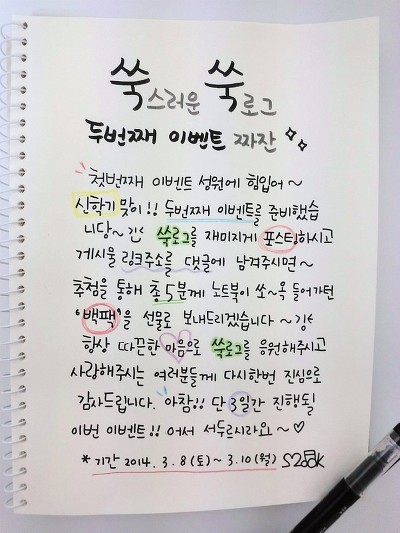 쑥스러운 쑥로그
두번째 이벤트 짜잔
첫번째 이벤트 성원에 힘입어~
신학기 맞이!! 두번째 이벤트를 준비했습
니당~ 쑥로그를 재미지게 포스팅하시고
게시물 링크주소를 댓글에 남겨주시면~
추첨을 통해 총 5분께 노트북이 쏘~옥 들어가던
'백팩'을 선물로 보내드리겠습니다~
항상 따끈한 마음으로 쑥로그를 응원해주시고
사랑해주시는 여러분들께 다시한번 진심으로
감사드립니다. 아참!! 단 3일간 진행될
이번 이벤트!! 어서 서두르시라요~♡
* 기간 2014. 3. 8 (토) ~ 3. 10 (월)